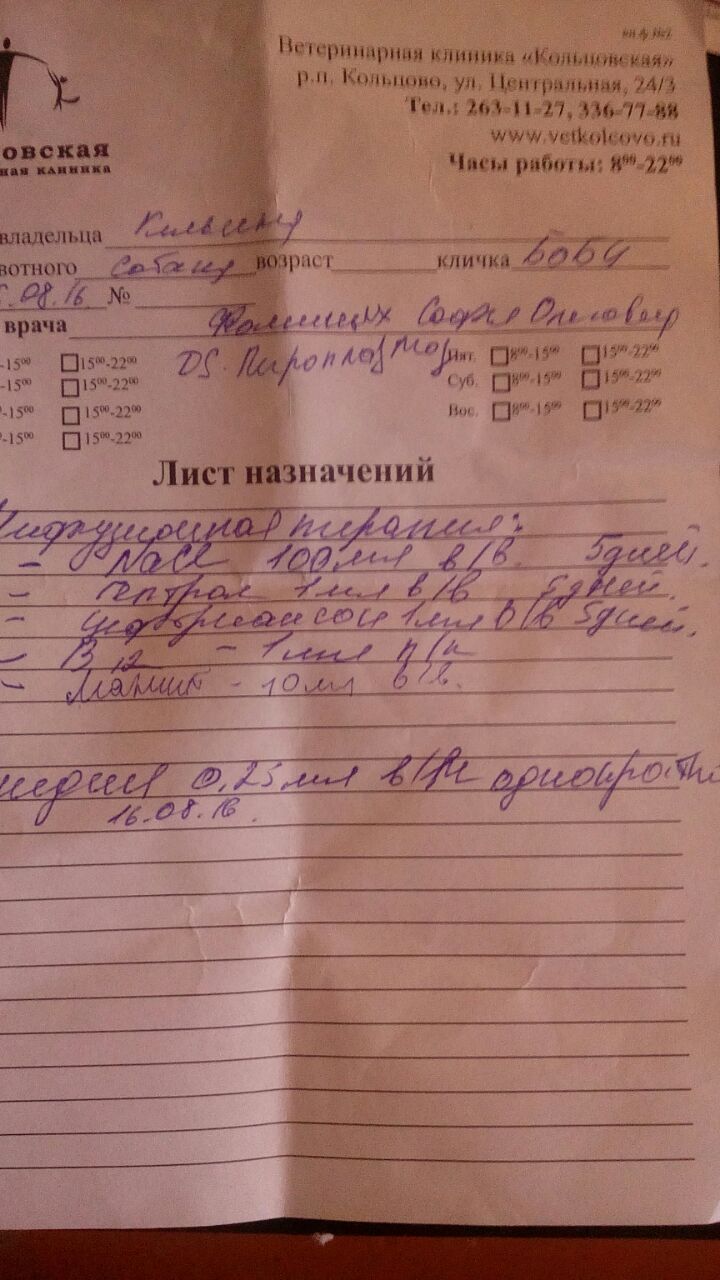 Ветеринарная клиника «Кольцовская»
р.п. Кольцово, ул. Центральная, 24/3
Тел.: 263-11-27, 336-77-88
www.vetkolcovo.ru
Часы работы: 8⁰⁰-22⁰⁰
овская
ная клиника
владельца
вотного собака возраст кличка БОБИ
.08.16 №
врача Софья Олеговна
DS. Пироплазмоз
-15⁰⁰ 15⁰⁰-22⁰⁰ Пят. 8⁰⁰-15⁰⁰ 15⁰⁰-22⁰⁰
-15⁰⁰ 15⁰⁰-22⁰⁰ Суб. 8⁰⁰-15⁰⁰ 15⁰⁰-22⁰⁰
-15⁰⁰ 15⁰⁰-22⁰⁰ Вос. 8⁰⁰-15⁰⁰ 15⁰⁰-22⁰⁰
-15⁰⁰ 15⁰⁰-22⁰⁰
Лист назначений
Инфузионная терапия:
- NaCl 100 мл в/в. 5 дней.
- 1 мл в/в 5 дней.
- цефтриаксон 1 мл в/в 5 дней.
- B12 - 1 мл п/к
- Маннит - 10 мл в/в.
0,25 мл в/м однократно
16.08.16.